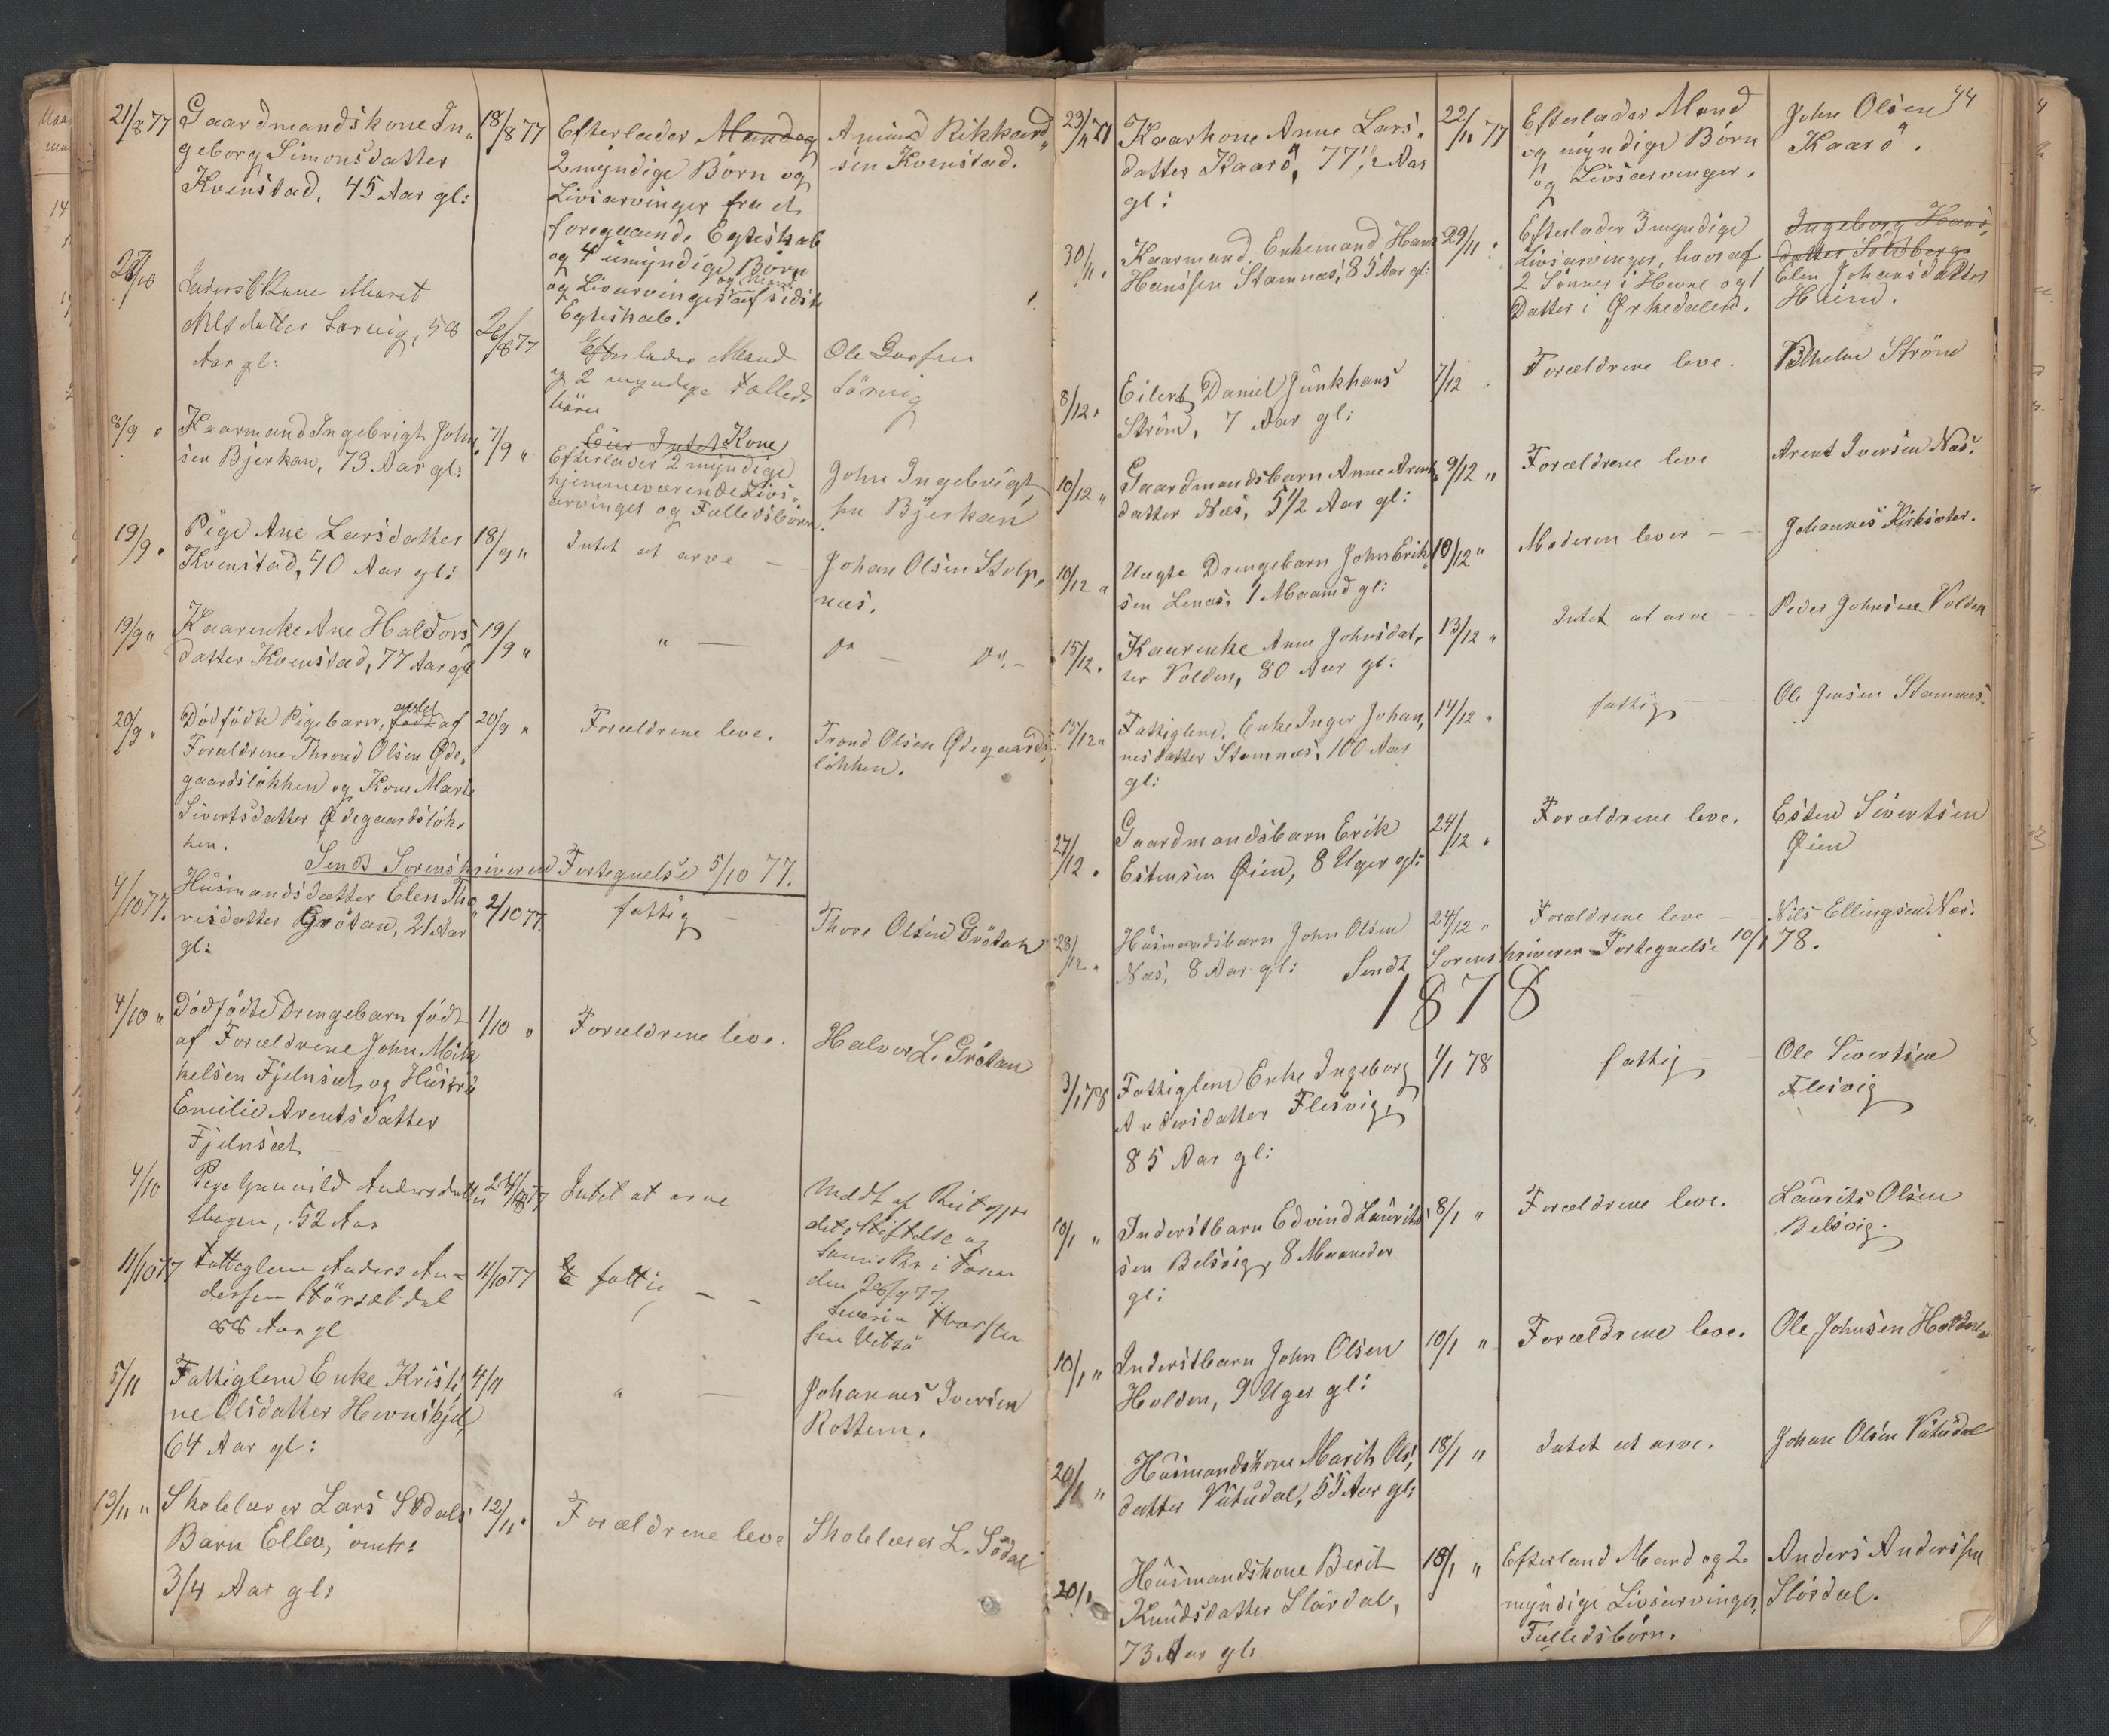 21/8 77 Gaardmandskone In- 18/8 77 Efterlader Mand og Amund Rikkard-
geborg Simonsdatter 2 myndige Börn og sen Kvenstad.
Kvenstad, 45 Aar gl: Livsarvinger fra et
foregaaende Egteskab
og 4 umyndige Börn
og Livsarvinger af sidste
Egteskab.
Inderst Kone Marit
Nilsdatter Sörvig, 58 26/8 77 Efterlader Mand Ole
Aar gl: og 2 myndige Fælleds Sörvig
börn
8/9 " Kaarmand Ingebrigt John- 7/9 " Eier Intet Kone
sen Bjerkan, 73 Aar gl: Efterlader 2 myndige John Ingebrigt-
hjemmeværende Livs- sen Bjerkan
arvinger og Fælledsbörn.
19/9 " Pige Ane Larsdatter 18/9 " Intet at arve — Johan Olsen Stolp-
Kvenstad, 40 Aar gl: næs.
19/9 " Kaarenke Ane Haldors- 19/9 " " — do — do —
datter Kvenstad, 77 Aar gl
20/9 " Dödfödte Pigebarn, avlet födt af 20/9 " Forældrene leve. Trond Olsen Ødegaards-
Forældrene Thrond Olsen Øde- lökken.
gaardslökken og Kone Marie
Sivertsdatter Ødegaardslök-
ken.
Sendt Sorenskriveren Fortegnelse 5/10 77.
4/10 77. Husmandsdatter Elen Tho- 2/10 77. fattig — Thore Olsen Grötan
resdatter Grötan, 21 Aar
gl:
4/10 " Dödfödte Drengebarn födt 1/10 " Forældrene leve. Halvor L. Grötan
af Forældrene John Mik-
kelsen Fjelnset og Hustru
Emilie Arentsdatter
Fjelnset —
4/10 Pige Gunnild Andersdatter Intet at arve Meldt af
Hagen, 52 Aar
11/10 77 Fattiglem Anders An- 11/10 77 fattig — —
dersen Störsetdal den 28/9 77.
88 Aar gl
5/11 Fattiglem Enke Kristi- 4/11 " — Johannes Iversen
ne Olsdatter Hevnskjel, Rottem.
64 Aar gl:
13/11 " Skolelærer Lars Södals 12/11 " Forældrene leve Skolelærer L. Södal
Barn Ellev, omtr:
3/4 Aar gl:
44
23/11 77 Kaarkone Anne Lars- 22/11 77 Efterlader Mand John Olsen
datter Kaarö, 77 1/2 Aar og myndige Börn Kaarö.
gl: og Livsarvinger.
30/11 " Kaarmand, Enkemand Hans 29/11 " Efterlader 3 myndige Ingeborg Hans-
Hanssen Stamnæs, 85 Aar gl: Livsarvinger, hvoraf datter Solsberg
2 Sönner i Hevne og 1 Elen Johansdatter
Datter i Ørkedalen.
8/12 " Eilert Daniel Junkhans 7/12 " Forældrene leve. Vilhelm Ström
Ström, 7 Aar gl:
10/12 " Gaardmandsbarn Anne Arent- 9/12 " Forældrene leve Arent Iversen Næs.
datter Næs, 5 1/2 Aar gl:
10/12 " Uægte Drengebarn John Erik- 10/12 " Moderen lever — Johannes Kirksæter.
sen Lenæs, 1 Maaned gl:
15/12 " Kaarenke Anne Johnsdat- 13/12 " Intet at arve — Peder Johnsen Volden
ter Volden, 80 Aar gl:
15/12 " Fattiglem, Enke Inger Johan- 14/12 " fattig — Ole Jensen Stamnæs.
nesdatter Stamnæs, 100 Aar
gl:
27/12 " Gaardmandsbarn Erik 24/12 " Forældrene leve. Esten Sivertsen
Estensen Øien, 8 Uger gl: Øien
28/12 " Husmandsbarn John Olsen 24/12 " Forældrene leve — Nils Ellingsen Næs.
Næs, 8 Aar gl: Sendt Sorenskriveren Fortegnelse 10/1 78.
1878
3/1 78 Fattiglem Enke Ingeborg 1/1 78 fattig — Ole Sivertsen
Andersdatter Flesvig, Flesvig
85 Aar gl:
10/1 " Inderstbarn Edvind Laurits- 8/1 " Forældrene leve. Laurits Olsen
sen Belsvig, 8 Maaneder Belsvig.
gl:
10/1 " Inderstbarn John Olsen 10/1 " Forældrene leve. Ole Johnsen Holden
Holden, 9 Uger gl:
20/1 " Husmandskone Marit Ols- 18/1 " Intet at arve. Johan Olsen Vutudal
datter Vutudal, 55 Aar gl:
20/1 Husmandskone Berit 18/1 " Efterland Mand og 2 Anders Anderssen
Knudsdatter Slördal, myndige Livsarvinger, Slördal.
73 Aar gl: Fælledsbörn.